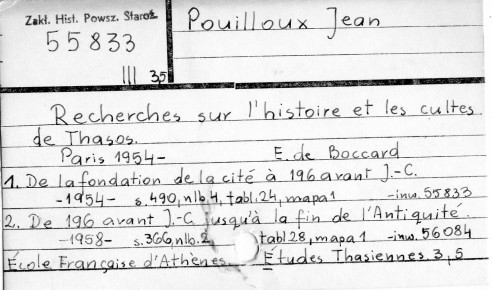 Zakł. Hist. Powsz. Staroż.
55833
III 35
Pouilloux Jean
Recherches sur l'histoire et les cultes
de Thasos.
Paris 1954- E. de Boccard
1. De la fondation de la cité à 196 avant J.-C.
-1954- s.490, nlb.4, tabl.24, mapa 1 -inw. 55833
2. De 196 avant J.-C jusqu'à la fin de l'Antiquité.
-1958- s.366, nlb.2, tabl 28, mapa 1 -inw. 56084
École Française d'Athènes. Etudes Thasiennes. 3, 5